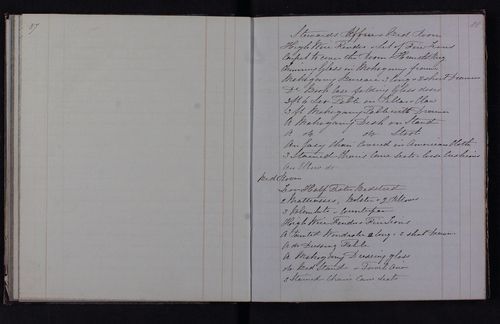 87
88
Stewards Office & Bed Room
High Wire Fender & Set of Fire Irons
Carpet to cover the Room & Hearth Rug
Chimney Glass in Mahogany frame
Mahogany 3 long & 2 short Drawers
Do Book Case folding Glass doors
3 ft 6 Table on Pillar & Claw
3 ft Mahogany Table with Drawer
A Mahogany Desk on Stand
A do do Stool
An Easy Chair covered in American Cloth
3 Stained Chairs Cane Seats loose Cushions
An do
Bed Room
Iron Half Bedstead
2 Mattresses, Bolster & 2 Pillows
3 Blankets & Counterpane
High Wire Fender & Fire Irons
A Painted Wardrobe 2 long & 2 short
A do Dressing Table
A Mahogany Dressing glass
do Stand & Towel
2 Stained Chairs Cane Seats